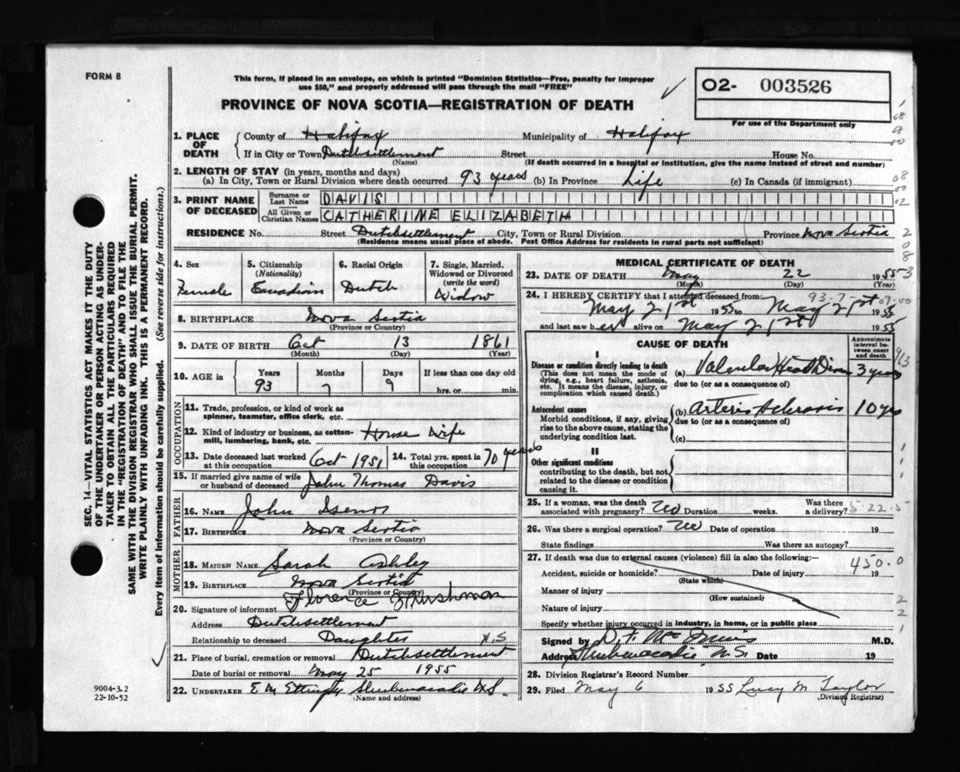 FORM 8
This form, if placed in an envelope, on which is printed "Dominion Statistics—Free, penalty for improper
use $50," and properly addressed will pass through the mail "FREE"
PROVINCE OF NOVA SCOTIA—REGISTRATION OF DEATH
02- 003526
For use of the Department only
1. PLACE OF DEATH County of Halifax Municipality of Halifax
If in City or Town Dutchsettlement Street House No.
(Name) (If death occurred in a hospital or institution, give the name instead of street and number)
2. LENGTH OF STAY (in years, months and days)
(a) In City, Town or Rural Division where death occurred 93 years (b) In Province Life (c) In Canada (if immigrant)
3. PRINT NAME OF DECEASED Surname or Last Name DAVIS
All Given or Christian Names CATHERINE ELIZABETH
RESIDENCE No. Street Dutchsettlement City, Town or Rural Division Province Nova Scotia
(Residence means usual place of abode. Post Office Address for residents in rural parts not sufficient)
4. Sex Female
5. Citizenship (Nationality) Canadian
6. Racial Origin Dutch
7. Single, Married, Widowed or Divorced (write the word) Widow
8. BIRTHPLACE Nova Scotia
(Province or Country)
9. DATE OF BIRTH Oct 13 1861
(Month) (Day) (Year)
10. AGE in Years 93 Months 7 Days 9 If less than one day old hrs. or min.
OCCUPATION
11. Trade, profession, or kind of work as spinner, teamster, office clerk, etc.
12. Kind of industry or business, as cotton-mill, lumbering, bank, etc. House Wife
13. Date deceased last worked at this occupation Oct 1951 14. Total yrs. spent in this occupation 70 years
15. If married give name of wife or husband of deceased John Thomas Davis
FATHER
16. NAME John Isenor
17. BIRTHPLACE Nova Scotia
(Province or Country)
MOTHER
18. MAIDEN NAME Sarah Ashley
19. BIRTHPLACE Nova Scotia
(Province or Country)
20. Signature of informant Florence
Address Dutchsettlement
Relationship to deceased Daughter N.S
21. Place of burial, cremation or removal Dutchsettlement
Date of burial or removal May 25 1955
22. UNDERTAKER E. M. Ettinger Shubenacadie N.S.
(Name and address)
MEDICAL CERTIFICATE OF DEATH
23. DATE OF DEATH May 22 1955
(Month) (Day)
24. I HEREBY CERTIFY that I attended deceased from
May 21st 1955 to May 21st 1955
and last saw her alive on May 21st 1955
CAUSE OF DEATH
Approximate interval between onset and death
I
Disease or condition directly leading to death
(This does not mean the mode of dying, e.g., heart failure, asthenia, etc. It means the disease, injury, or complication which caused death.)
(a) Valvular Heart Disease 3 years
due to (or as a consequence of)
Antecedent causes
Morbid conditions, if any, giving rise to the above cause, stating the underlying condition last.
(b) Arterio Sclerosis 10 yrs
due to (or as a consequence of)
(c)
II
Other significant conditions
contributing to the death, but not related to the disease or condition causing it.
25. If a woman, was the death associated with pregnancy? No Duration weeks. Was there a delivery?
26. Was there a surgical operation? No Date of operation 19
State findings Was there an autopsy?
27. If death was due to external causes (violence) fill in also the following:-
Accident, suicide or homicide? Date of injury 19
(State which)
450.0
Manner of injury
(How sustained)
Nature of injury
Specify whether injury occurred in industry, in home, or in public place
Signed by D. F. McInnis M.D.
Address Shubenacadie, N.S. Date 19
28. Division Registrar's Record Number
29. Filed May 6 1955 Lucy M Taylor
(Division Registrar)
SEC. 14—VITAL STATISTICS ACT MAKES IT THE DUTY
OF THE UNDERTAKER OR PERSON ACTING AS UNDER-
TAKER TO OBTAIN ALL THE PARTICULARS REQUIRED
IN THE "REGISTRATION OF DEATH" AND TO FILE THE
SAME WITH THE DIVISION REGISTRAR WHO SHALL ISSUE THE BURIAL PERMIT.
WRITE PLAINLY WITH UNFADING INK. THIS IS A PERMANENT RECORD.
Every item of information should be carefully supplied. (See reverse side for instructions.)
9004-3.2
22-10-52